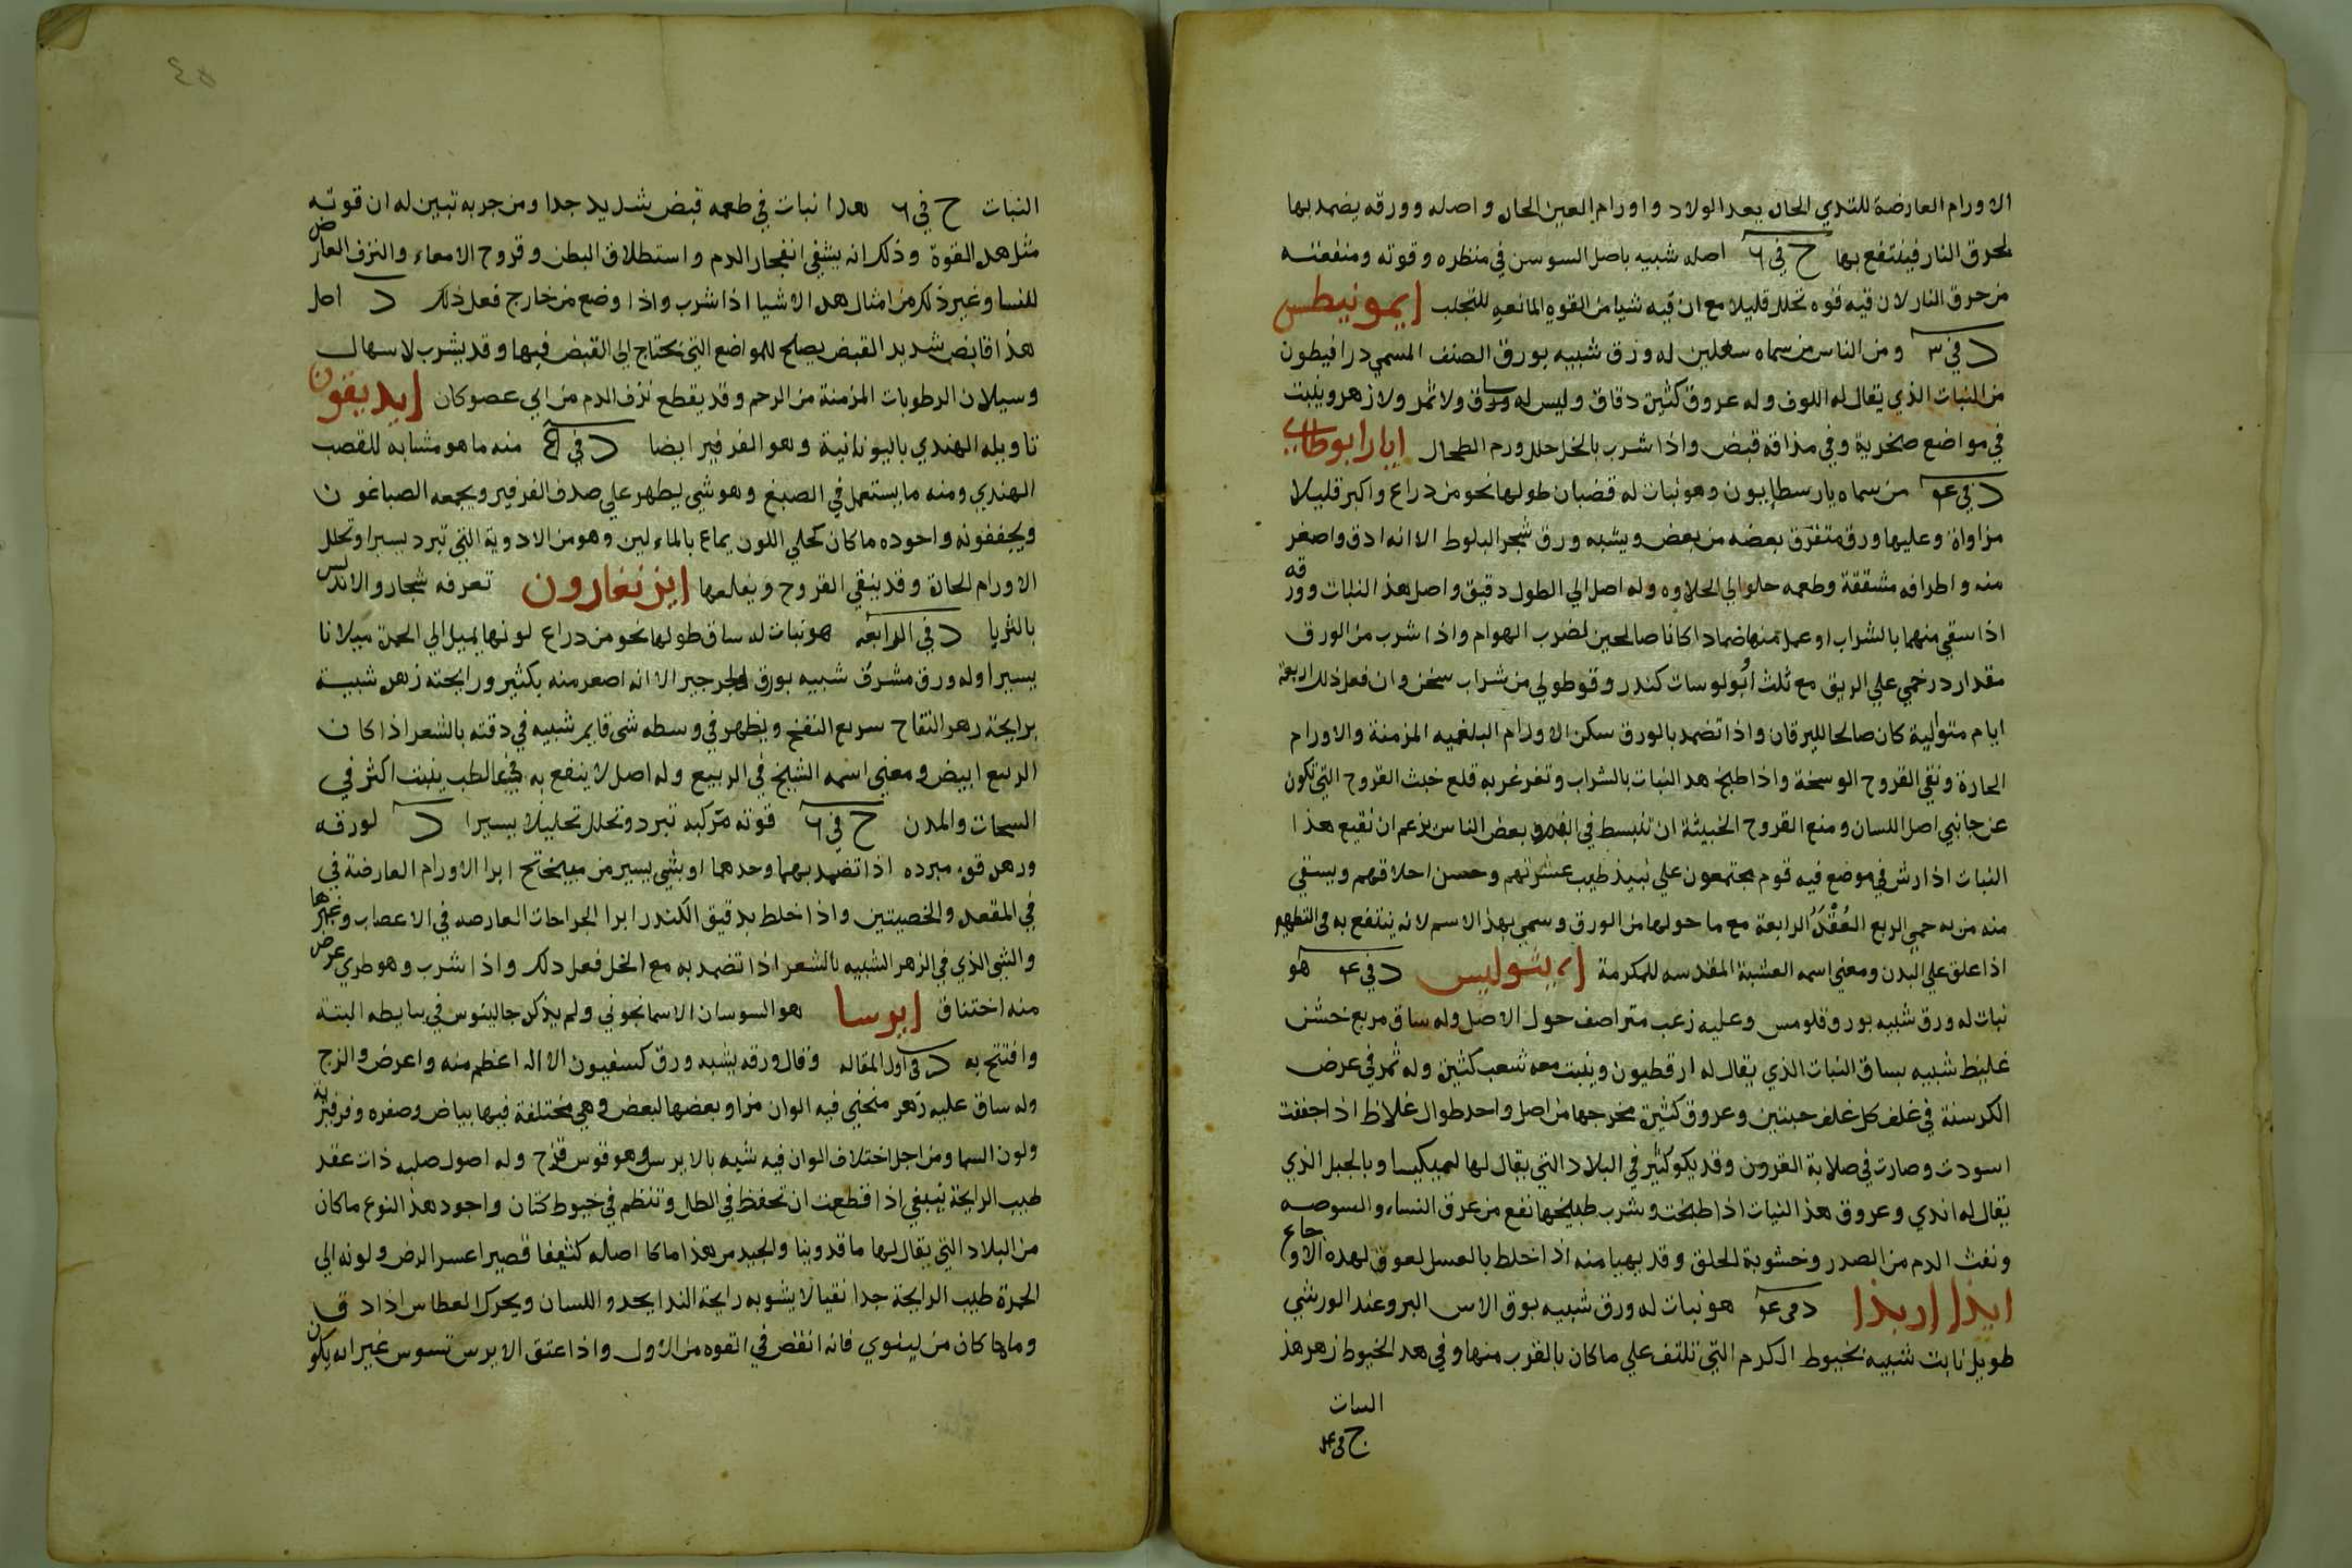 الاورام العارضة للثدي الحان بعد الولاد واورام العين الحان واصله وورقه يضمد بها
لحرق النار فينتفع بها ج في ٦ اصله شبيه باصل السوسن في منظره وقوته ومنفعته
من حرق النار لان فيه قوه تحلل قليلا مع ان فيه شيا من القوه المانعه للتجلب إيمونيطس
د في ٣ ومن الناس من سماه له ورق شبيه بورق الصنف المسمي درافيطون
من النبات الذي يقال له اللوف وله عروق كثين دقاق وليس له ساق ولا ثمر ولا زهر وينبت
في مواضع صخرية وفي مذاقه قبض واذا شرب بالخل حلل ورم الطحال ايارابوطاني
د في ٤ من سماه يارسطاريون وهو نبات له قضبان طولها نحو من دراع واكبر قليلا
مزاواة وعليها ورق متفرق بعضه من بعض ويشبه ورق شجر البلوط الا انه ادق واصغر
منه واطرافه مشققة وطعمه حلو الي الحلاوه وله اصل الي الطول دقيق واصل هذ النبات وورقه
اذا سقي منهما بالشراب او عمل منها ضمادا كانا صالحين لضرب الهوام واذا شرب من الورق
مقدار درخمي علي الريق مع ثلث ابولوسات كندر وقوطولي من شراب سخن وان فعل ذلك اربعة
ايام متوالية كان صالحا لليرقان واذا تضمد بالورق سكن الاورام البلغميه المزمنة والاورام
الحارة ونقي القروح الوسخة واذا طبخ هد النبات بالشراب وتغرغر به قلع خبث القروح التي تكون
عن جانبي اصل اللسان ومنع القروح الخبيثة ان تنبسط في الفم وبعض الناس يزعم ان نقيع هذا
النبات اذا رش في موضع فيه قوم مجتمعون علي نبيذ طيب عشرتهم وحسن احلاقهم ويسقي
منه من به حمي الربع العقد الرابعة مع ما حولها من الورق وسمي بهذا الاسم لانه ينتفع به في التطهير
اذا علق علي البدن ومعني اسمه العشبة المقدسه المكرمة ايثوليس د في ٤ هو
نبات له ورق شبيه بورق قلومس وعليه زعب متراصف حول الاصل وله ساق مربع خشن
غليظ شبيه بساق النبات الذي يقال له ارقطيون وينبت معه شعب كثين وله ثمر في عرض
الكرسنة في غلف كل غلف حبتين وعروق كثين مخرجها من اصل واحد طوال غلاظ اذا جففت
اسودت وصارت في صلابة القرون وقد يكو كثير في البلاد التي يقال لها وبالجبل الذي
يقال له اندي وعروق هذ النبات اذا طبخت وشرب طبيخها نفع من عرق النساء والسوصه
ونفث الدم من الصدر وخشونة الحلق وقد يهيا منه اذا خلط بالعسل لعوق لهده الاوجاع
ايذا اربذا د في ٤ هو نبات له ورق شبيه بوق الاس البر وعند الورشي
طويل نابت شبيه بخيوط الكرم التي تلتف علي ما كان بالقرب منها وفي هد الخيوط زهر هذ
النبات
ج في ٤
٤٥
النبات ج في ٦ هدا نبات في طعمه قبض شديد جدا ومن جربه تبين له ان قوته
مثل هد القوة وذلك انه يشفي انفجار الدم واستطلاق البطن وقروح الامعاء والنزف العارض
للنسا وغير ذلك من امثال هد الاشيا اذا شرب واذا وضع من خارج فعل ذلك د اصل
هذا قابض شديد القبض يصلح للمواضع التي تحتاج الي القبض فيها وقد يشرب لاسهال
وسيلان الرطوبات المزمنة من الرحم وقد يقطع نزف الدم من اي عضو كان إيديقون
تاويله الهندي باليونانية وهو الفرفير ايضا د في منه ما هو مشابه للقصب
الهندي ومنه ما يستعمل في الصبغ وهو شي يظهر علي صدف الفرفير ويجمعه الصباغون
ويجففونه واحوده ما كان كحلي اللون يماع بالماء لين وهو من الادوية التي تبرد يسيرا وتحلل
الاورام الحان وقد ينقي القروح ويقلعها ايزنغارون تعرفه شجارو الاندلس
بالثريا د في الرابعه هو نبات له ساق طولها نحو من دراع لونها يميل الي الحمن ميلانا
يسيرا وله ورق مشرف شبيه بورق الجرجير الا انه اصعر منه بكثير ورايحته زهن شبية
برايحة رهر التفاح سريع النفخ ويظهر في وسطه شي قايم شبيه في دقته بالشعر اذا كان
الربيع ابيض ومعني اسمه الشيخ في الربيع وله اصل لا ينفع به في الطب ينبت اكثر في
السحات والمدن ج في ٦ قوته مركبه تبرد وتحلل تحليلا يسيرا د لورقه
ورهن قوه مبرده اذا تضمد بهما وحدهما او بشي يسير من ميبختج ابرا الاورام العارضة في
في المقعد والخصيتين واذا خلط بدقيق الكندر ابرا الجراحات العارصه في الاعصاب وغيرها
والشي الذي في الزهر الشبيه بالشعر اذا تضمد به مع الخل فعل دلك واذا شرب وهو طري عرض
منه اختناق ايوسا هو السوسان الاسمانجوني ولم يذكن جالينوس في بسايطه البتة
وافتتح به د في اول المقاله وقال ورقه يشبه ورق كسفيون الا انه اعظم منه واعرض والزج
وله ساق عليه زهر منحني فيه الوان مزاو بعضها لبعض وهي مختلفة فيها بياض وصفره وفرفيرية
ولون السما ومن اجل اختلاف الوان فيه شبه بالايرس وهو قوس قزح وله اصول صلبه ذات عقد
طيب الرايحة ينبغي اذا قطعت ان تحفظ في الظل وتنظم في خيوط كتان واجود هذ النوع ما كان
من البلاد التي يقال لها ماقدونيا والجيد من هذا ما كا اصله كثيفا قصيرا عسر الرض ولونه الي
الحمرة طيب الرايحة جدا نقيا لا يشوبه رايحة الندا يحدو اللسان ويحرك العطاس اذا دق
وما كان من لينوي فانه انقض في القوه من الاول واذا عتق الايرس تسوس غير انه يكون